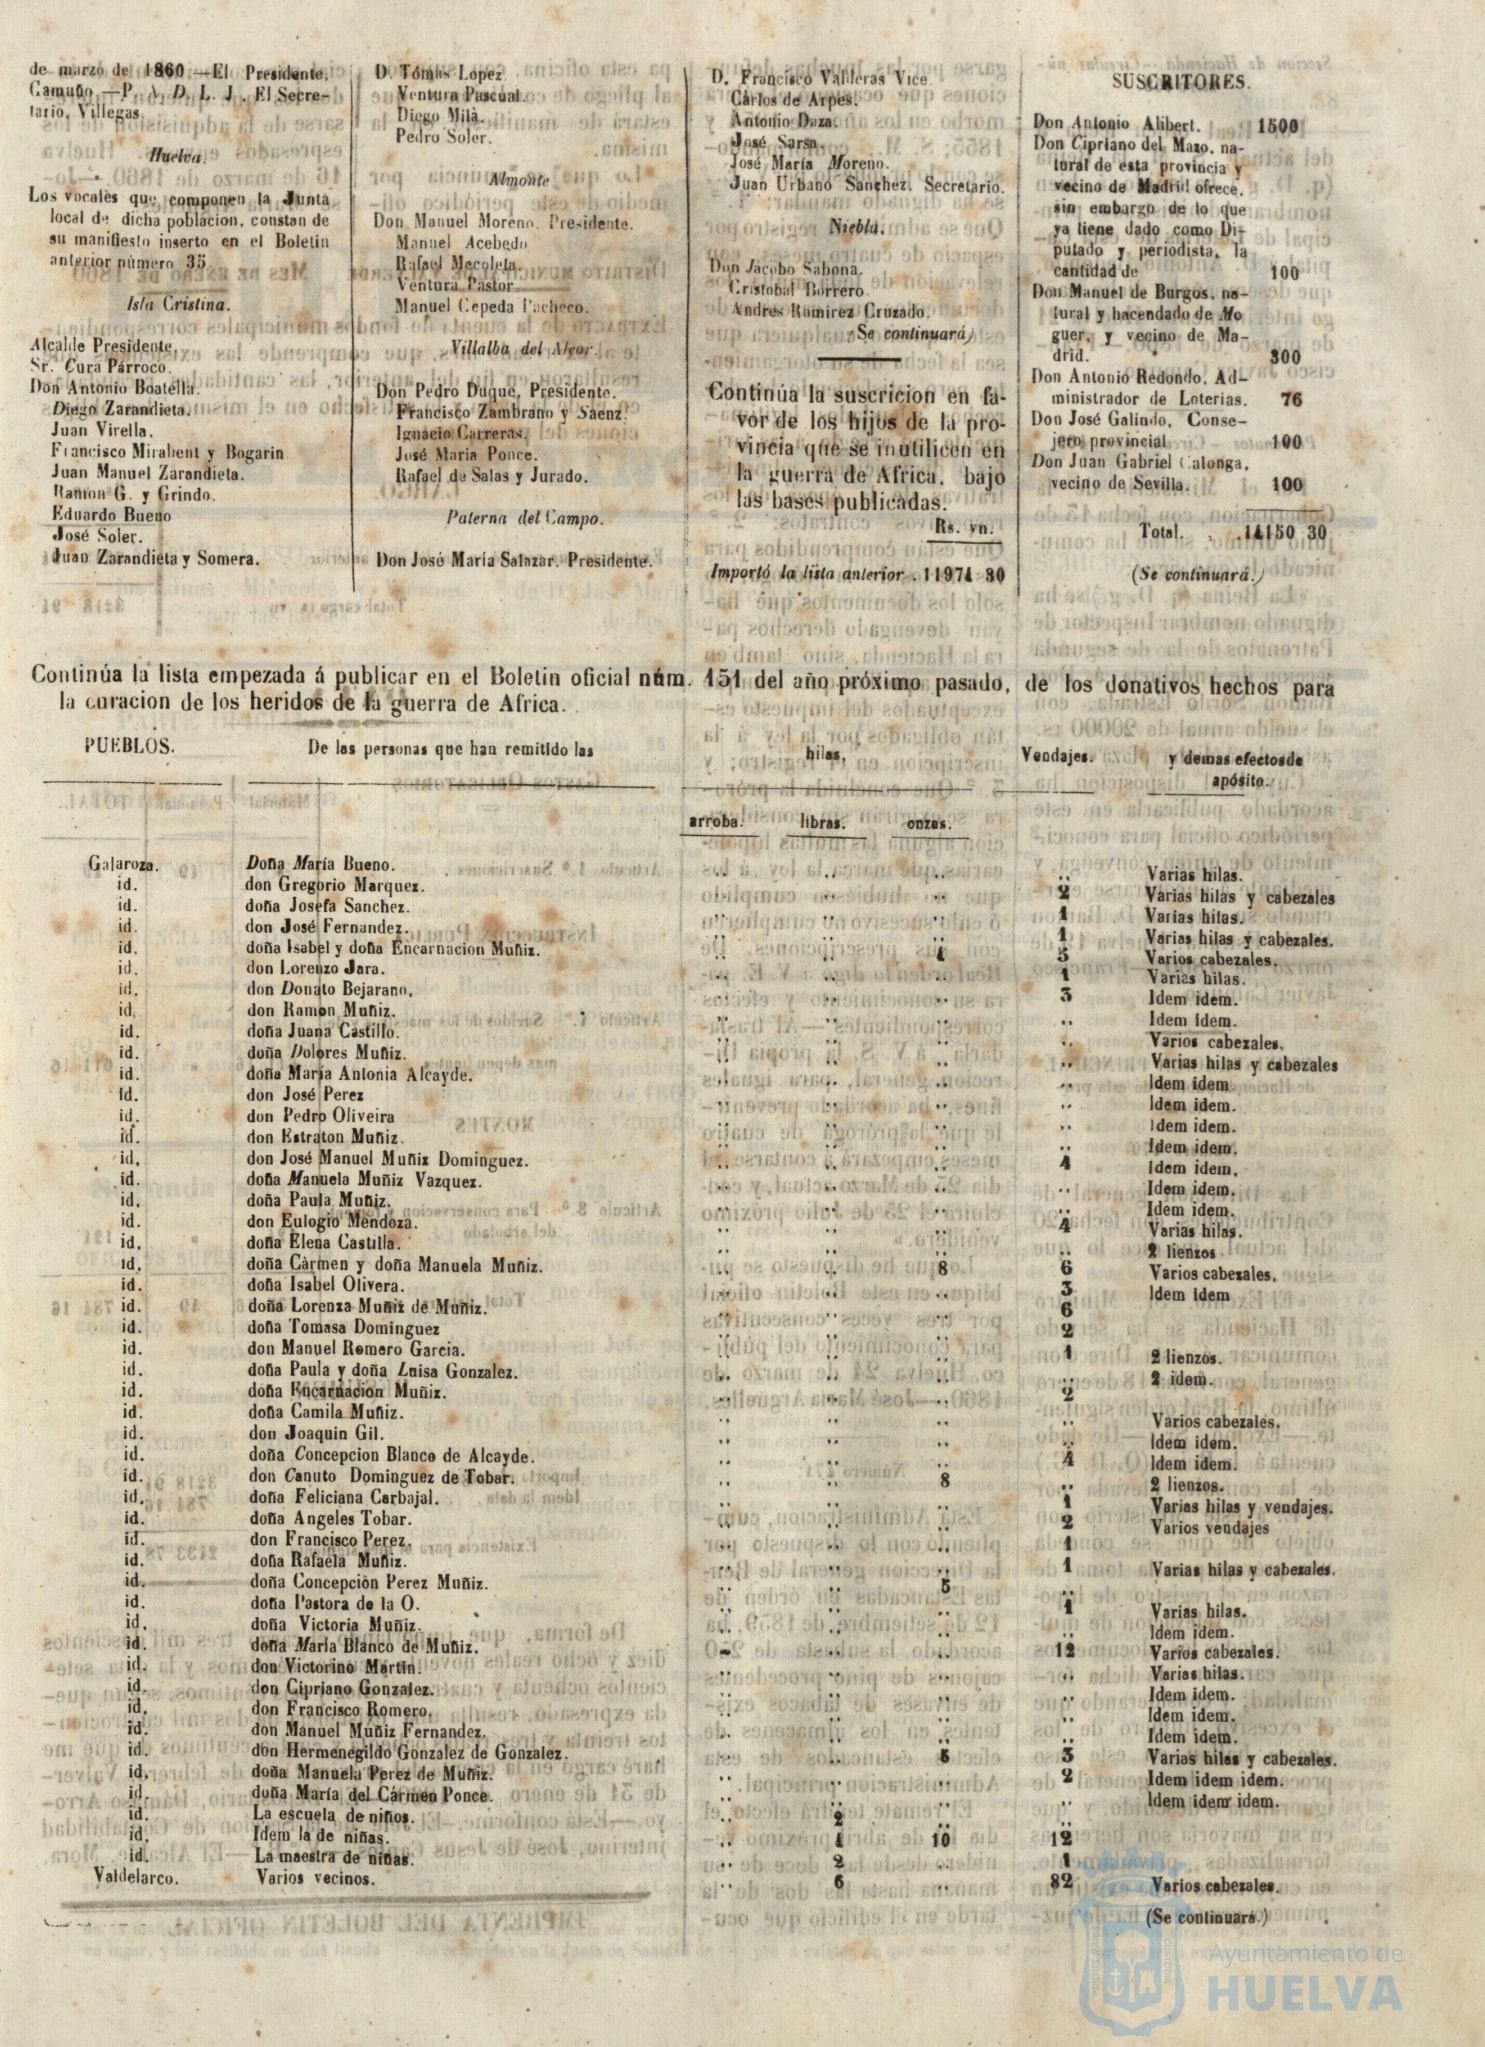 de marzo de 1860.—El Presidente,
Camuño.—P. A. D. L. J. El Secre-
tario, Villegas.
Huelva.
Los vocales que componen la Junta
local de dicha poblacion, constan de
su manifiesto inserto en el Boletin
anterior número 35.
Isla Cristina.
Alcalde Presidente.
Sr. Cura Párroco.
Don Antonio Boatella.
Diego Zarandieta.
Juan Virella.
Francisco Mirabent y Bogarin
Juan Manuel Zarandieta.
Ramon G. y Grindo.
Eduardo Bueno
José Soler.
Juan Zarandieta y Somera.
D. Tómas Lopez
Ventura Pascual.
Diego Milà.
Pedro Soler.
Almonte
Don Manuel Moreno, Presidente.
Manuel Acebedo
Rafael Mecoleta.
Ventura Pastor
Manuel Cepeda Pacheco.
Villalba del Alcor.
Don Pedro Duque, Presidente.
Francisco Zambrano y Saenz.
Ignacio Carreras.
José Maria Ponce.
Rafael de Salas y Jurado.
Paterna del Campo.
Don José María Salazar. Presidente.
D. Francisco Valderas Vice
Cárlos de Arpes.
Antonio Daza.
José Sarsa.
José María Moreno.
Juan Urbano Sanchez. Secretario.
Niebla.
Don Jacobo Sabona.
Cristobal Borrero
Andres Ramirez Cruzado.
(Se continuará)
Continúa la suscricion en fa-
vor de los hijos de la pro-
vincia que se inutilicen en
la guerra de Africa, bajo
las bases publicadas.
Rs. vn.
Importó la lista anterior . 11971 30
SUSCRITORES.
Don Antonio Alibert. 1500
Don Cipriano del Mazo, na-
tural de esta provincia y
vecino de Madrid ofrece,
sin embargo de lo que
ya tiene dado como Di-
putado y periodista, la
cantidad de 100
Don Manuel de Burgos, na-
tural y hacendado de Mo
guer, y vecino de Ma-
drid. 300
Don Antonio Redondo, Ad-
ministrador de Loterias. 76
Don José Galindo, Conse-
jero provincial 100
Don Juan Gabriel Calonga,
vecino de Sevilla. 100
Total. . . 14150 30
(Se continuará.)
Continúa la lista empezada á publicar en el Boletin oficial núm. 151 del año próximo pasado, de los donativos hechos para
la curacion de los heridos de la guerra de Africa.
PUEBLOS. De las personas que han remitido las hilas, Vendajes. y demas efectos de
apósito.
arroba. libras. onzas.
Galaroza. Doña María Bueno. .. .. .. .. Varias hilas.
id. don Gregorio Marquez. .. .. .. 2 Varias hilas y cabezales
id. doña Josefa Sanchez. .. .. .. 1 Varias hilas.
id. don José Fernandez. .. .. .. 1 Varias hilas y cabezales.
id. doña Isabel y doña Encarnacion Muñiz. .. .. 4 5 Varios cabezales.
id. don Lorenzo Jara. .. .. .. 1 Varias hilas.
id. don Donato Bejarano, .. .. .. 3 Idem idem.
id. don Ramon Muñiz. .. .. .. .. Idem idem.
id. doña Juana Castillo. .. .. .. .. Varios cabezales.
id. doña Dolores Muñiz. .. .. .. .. Varias hilas y cabezales
id. doña María Antonia Alcayde. .. .. .. .. Idem idem.
id. don José Perez .. .. .. .. Idem idem.
id. don Pedro Oliveira .. .. .. .. Idem idem.
id. don Estraton Muñiz. .. .. .. .. Idem idem.
id. don José Manuel Muñiz Dominguez. .. .. .. 4 Idem idem.
id. doña Manuela Muñiz Vazquez. .. .. .. .. Idem idem.
id. doña Paula Muñiz. .. .. .. .. Idem idem.
id. don Eulogio Mendoza. .. .. .. 4 Varias hilas.
id. doña Elena Castilla. .. .. .. .. 2 lienzos
id. doña Càrmen y doña Manuela Muñiz. .. .. 8 6 Varios cabezales.
id. doña Isabel Olivera. .. .. .. 3 Idem idem
id. doña Lorenza Muñiz de Muñiz. .. .. .. 6
id. doña Tomasa Dominguez .. .. .. 2
id. don Manuel Romero Garcia. .. .. .. 1 2 lienzos.
id. doña Paula y doña Luisa Gonzalez. .. .. .. .. 2 idem.
id. doña Encarnacion Muñiz. .. .. .. 2
id. doña Camila Muñiz. .. .. .. .. Varios cabezales.
id. don Joaquin Gil. .. .. .. .. Idem idem.
id. doña Concepcion Blanco de Alcayde. .. .. .. 4 Idem idem.
id. don Canuto Dominguez de Tobar. .. .. 8 .. 2 lienzos.
id. doña Feliciana Carbajal. .. .. .. 1 Varias hilas y vendajes.
id. doña Angeles Tobar. .. .. .. 2 Varios vendajes
id. don Francisco Perez. .. .. .. 1
id. doña Rafaela Muñiz. .. .. .. 1 Varias hilas y cabezales.
id. doña Concepciòn Perez Muñiz. .. .. 5 ..
id. doña Pastora de la O. .. .. .. 1 Varias hilas.
id. doña Victoria Muñiz. .. .. .. .. Idem idem.
id. doña Maria Blanco de Muñiz. .. .. .. 12 Varios cabezales.
id. don Victorino Martin. .. .. .. .. Varias hilas.
id. don Cipriano Gonzalez. .. .. .. .. Idem idem.
id. don Francisco Romero. .. .. .. .. Idem idem.
id. don Manuel Muñiz Fernandez. .. .. .. .. Idem idem.
id. don Hermenegildo Gonzalez de Gonzalez. .. .. 5 3 Varias hilas y cabezales.
id. doña Manuela Perez de Muñiz. .. .. .. 2 Idem idem idem.
id. doña María del Cármen Ponce. .. .. .. .. Idem idem idem.
id. La escuela de niños. .. 2 .. ..
id. Idem la de niñas. .. 1 10 12
id. La maestra de niñas. .. 2 .. 1
Valdelarco. Varios vecinos. .. 6 .. 82 Varios cabezales.
(Se continuará.)
Ayuntamiento de
HUELVA